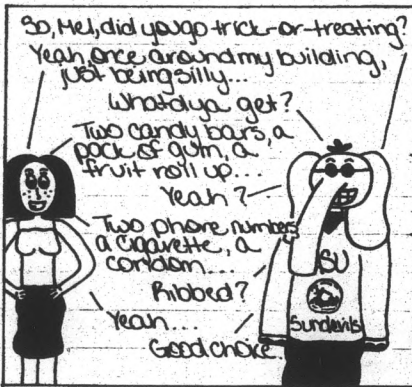 So, Mel, did you go trick-or-treating?
Yeah, once around my building,
just being silly...
Whatdya get?
Two candy bars, a
pack of gum, a
fruit roll up...
Yeah?
Two phone numbers
a cigarette, a
condom...
Ribbed?
Yeah...
Good choice.
SU
Sundevils